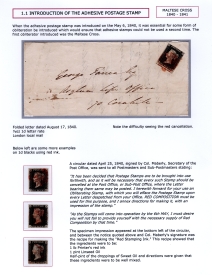 1.1 INTRODUCTION OF THE ADHESIVE POSTAGE STAMP
MALTESE CROSS
1840 - 1841
When the adhesive postage stamp was introduced on the May 6, 1840, it was essential some form of
obliterator be introduced which would ensure that adhesive stamps could not be used a second time. The
first obliterator introduced was the Maltese Cross.
George Faree Esq
Folded letter dated August 17, 1840.
1x2 10 letter rate
London local mail
Note the difficulty seeing the red cancellation.
Below left are some more examples
on 1d blacks using red ink.
A circular dated April 25, 1840, signed by Col. Maberly, Secretary of the
Post Office, was sent to all Postmasters and Sub-Postmasters stating:
"It has been decided that Postage Stamps are to be brought into use
forthwith, and as it will be necessary that every such Stamp should be
cancelled at the Post Office, or Sub-Post Office, where the Letter
bearing them same may be posted, I herewith forward for your use an
Obliterating Stamp, with which you will efface the Postage Stamp upon
every Letter despatched from your Office. RED COMPOSITION must be
used for this purpose, and I annex directions for making it, with an
impression of the stamp."
"As the Stamps will come into operation by the 6th MAY, I must desire
you will not fail to provide yourself with the necessary supply of Red
Composition by that time."
The specimen impression appeared at the bottom left of the circular,
and between the notice quoted above and Col. Maberly's signature was
the recipe for making the "Red Stamping Ink." This recipe showed that
the ingredients were to be:
1 lb Printer's red ink
1 pint Linseed oil
Half-pint of the droppings of Sweet Oil and directions were given that
these ingredients were to be well mixed.